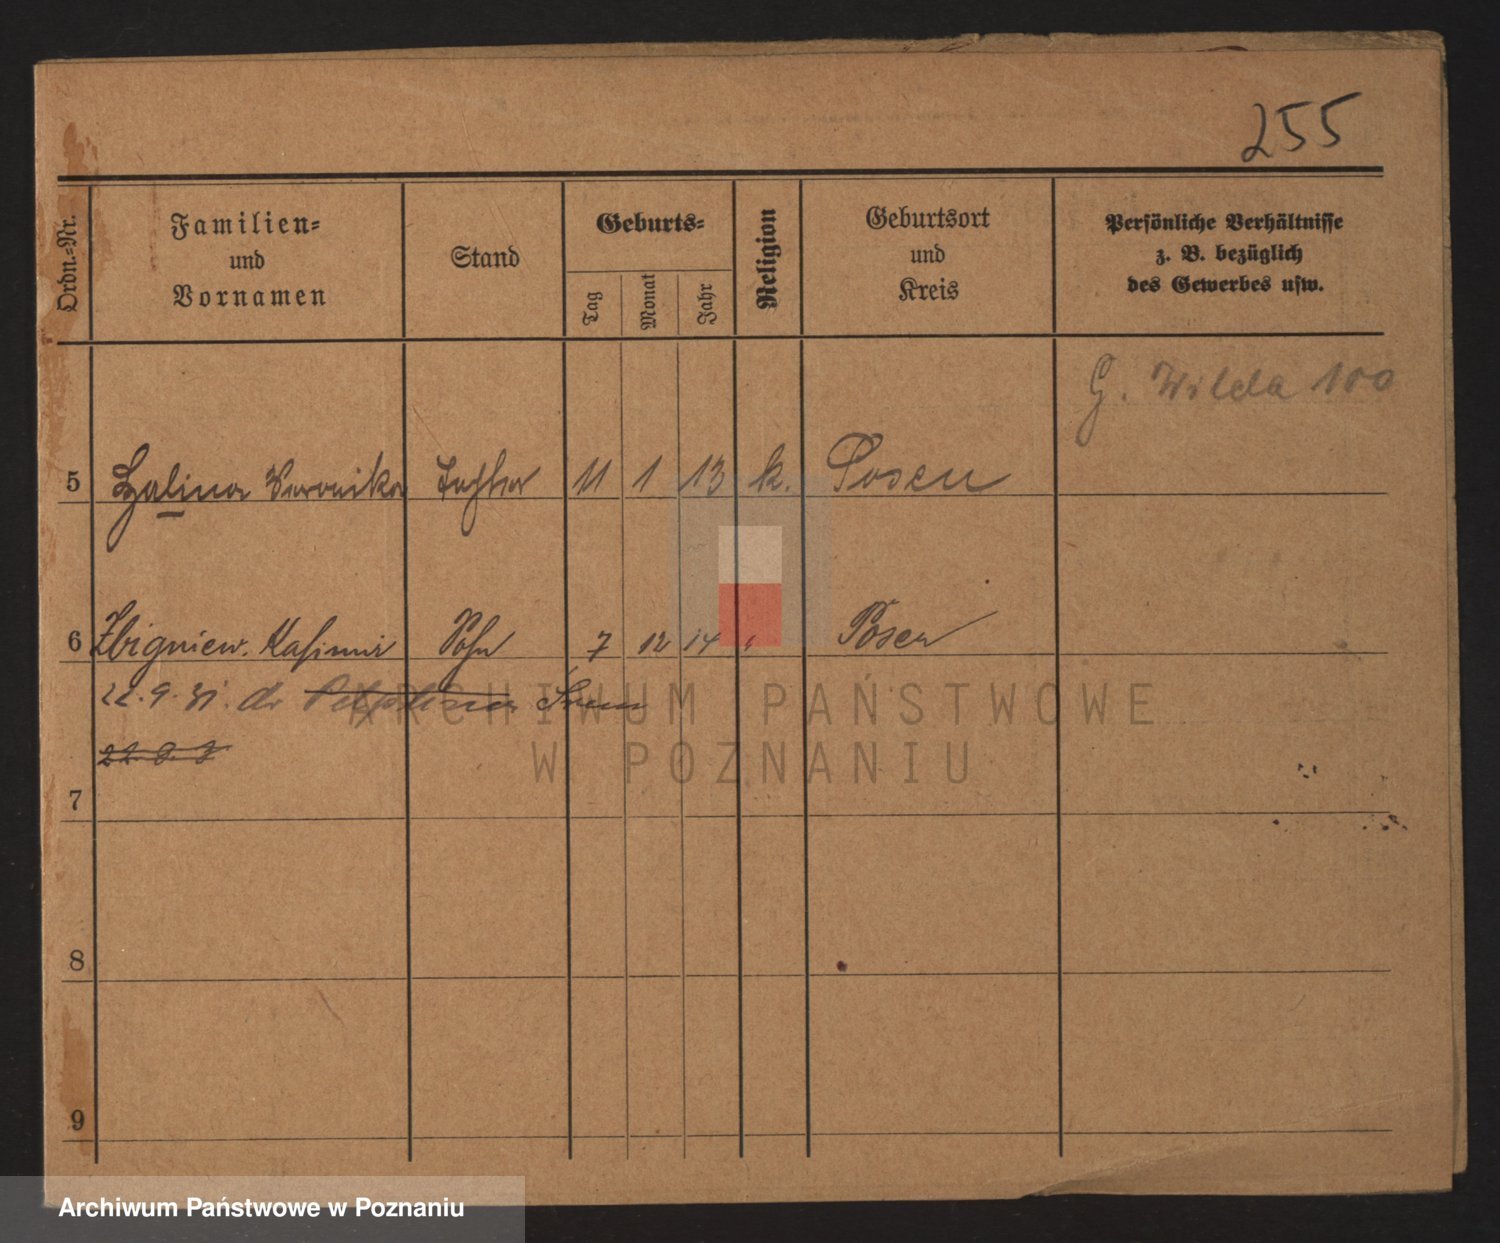 255
Ordn.=Nr.
Familien=
und
Vornamen
Stand
Geburts=
Tag
Monat
Jahr
Religion
Geburtsort
und
Kreis
Persönliche Verhältnisse
z. B. bezüglich
des Gewerbes usw.
G. Wilda 100
5 Halina Veronika Tochter 11 1 13 k. Posen
6 Zbigniew. Kasimir Sohn 7 12 14 " Posen
22.9.31. do Śrem
7
8
9
ARCHIWUM PAŃSTWOWE
W POZNANIU
Archiwum Państwowe w Poznaniu